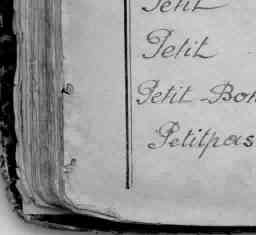 Petit
Petit
Petit-Bon
Petitpas